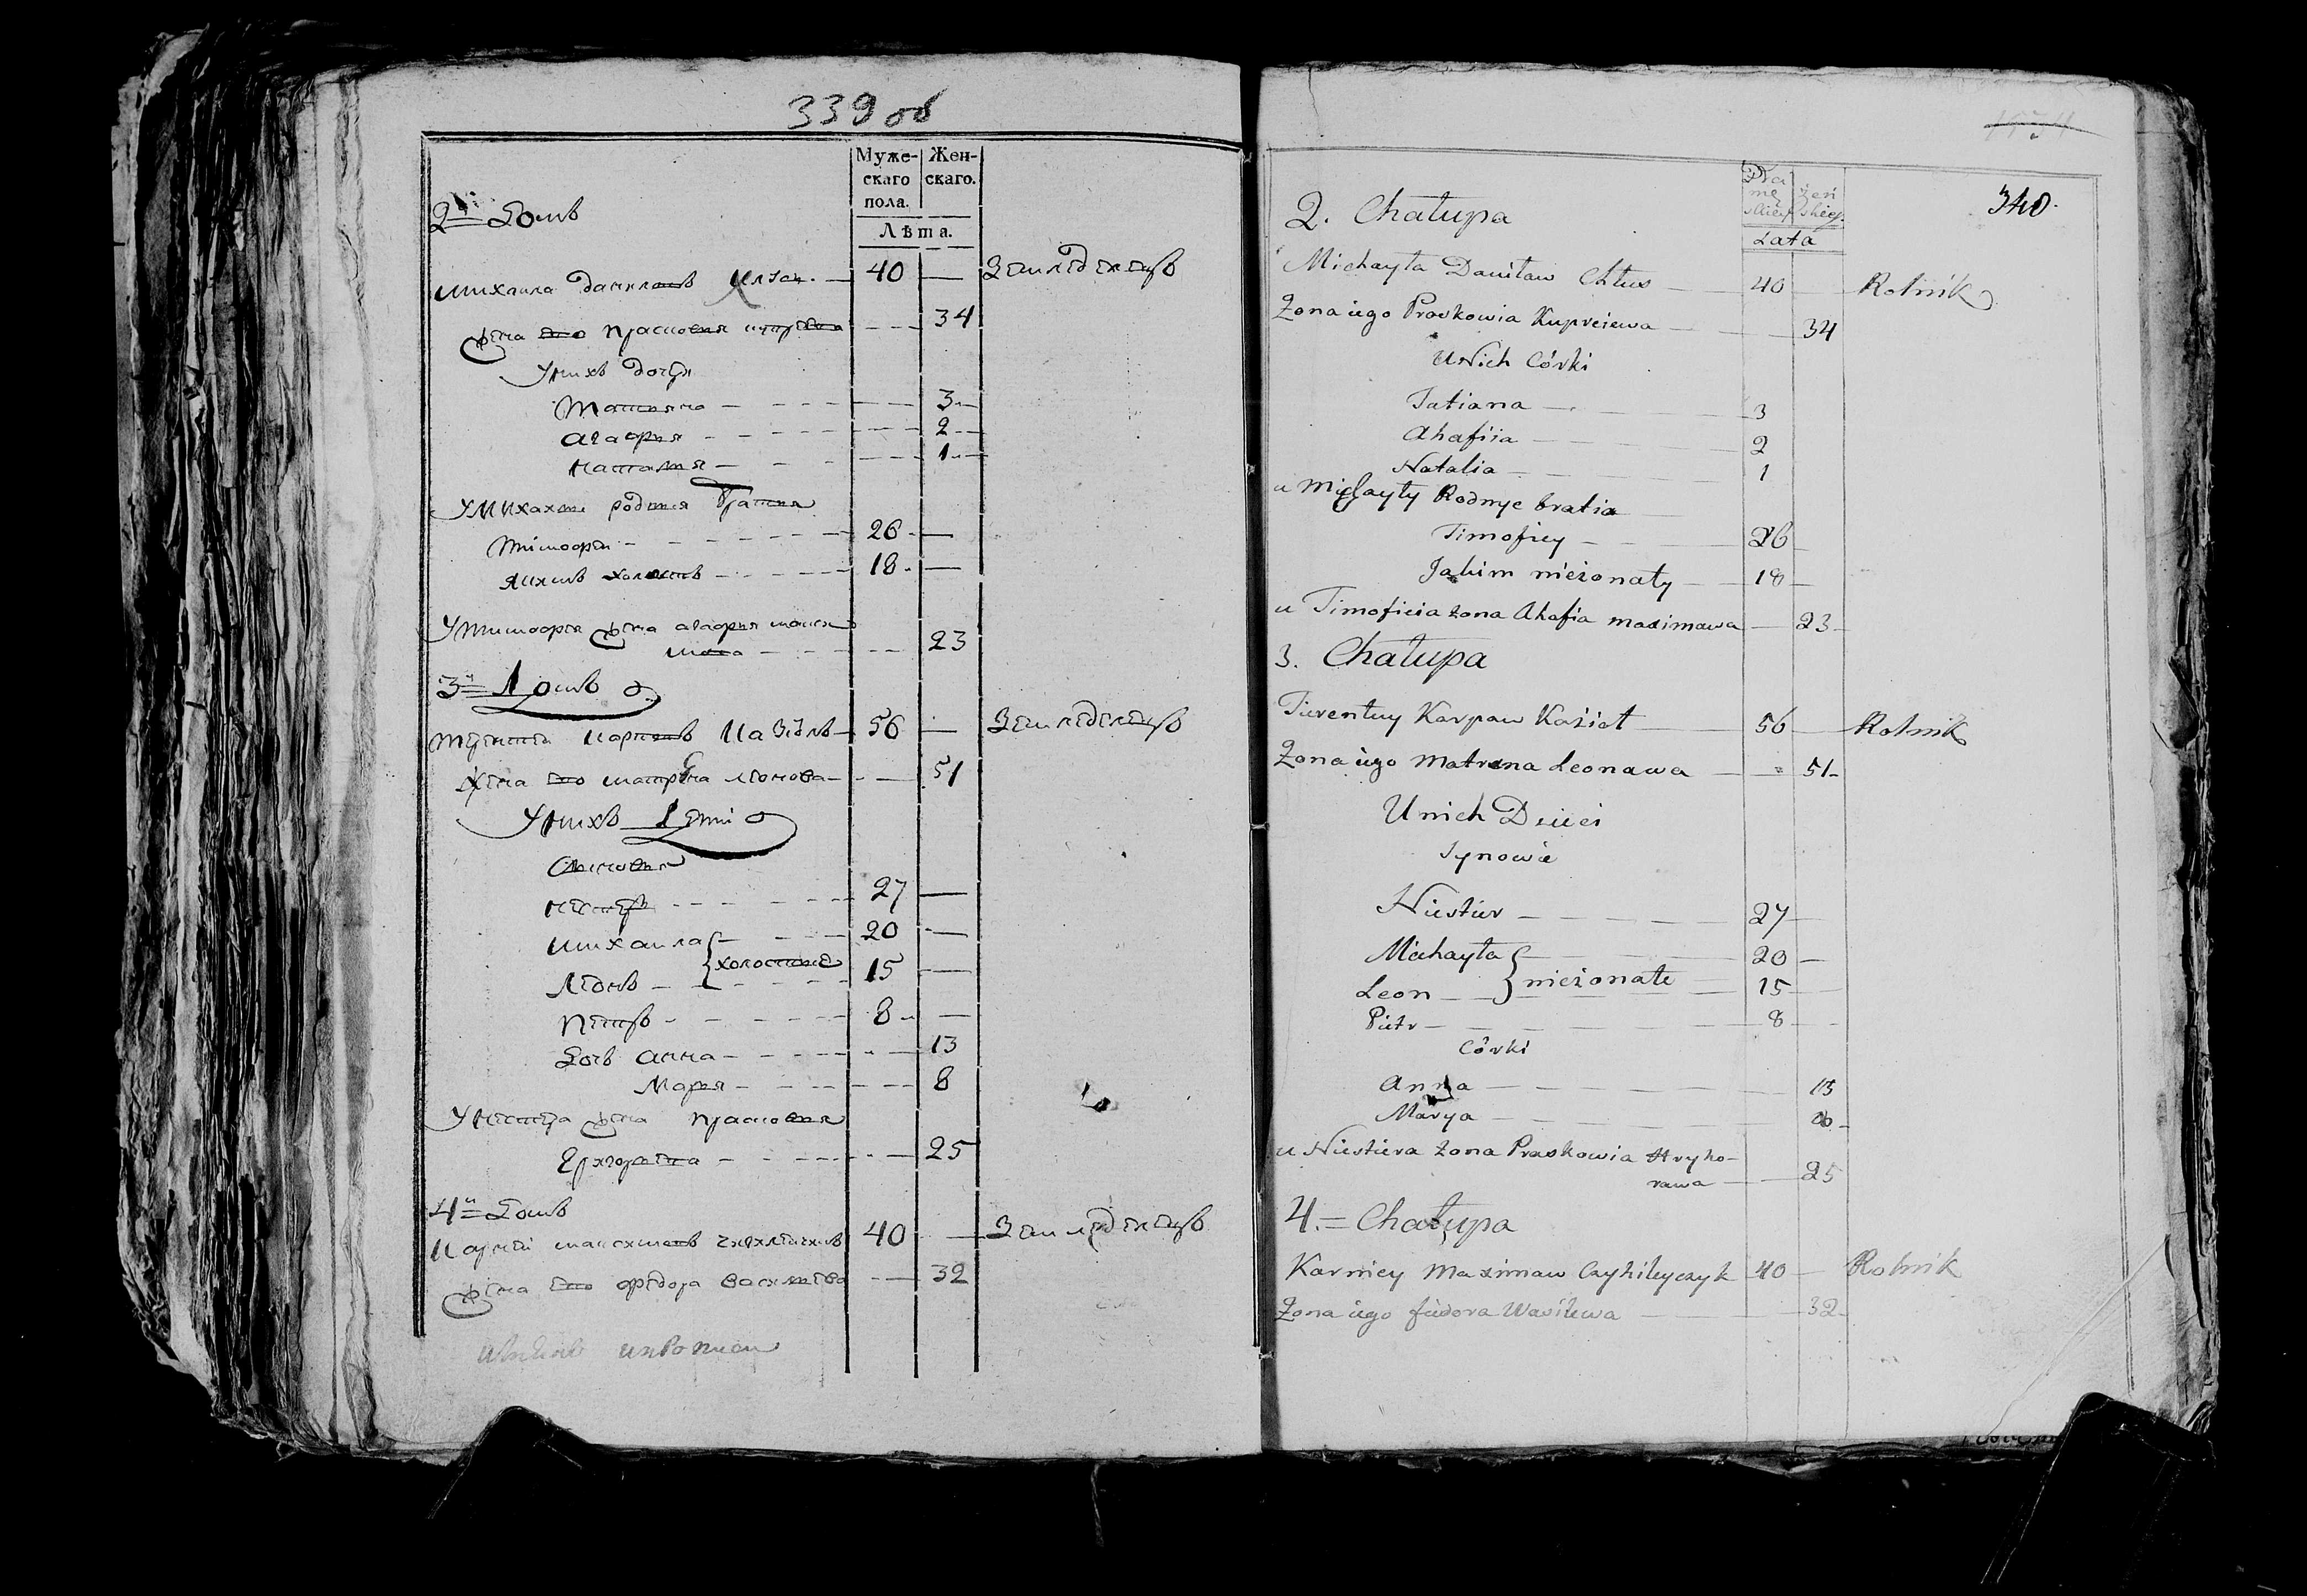 339 об
Муже-
скаго
пола.
Жен-
скаго.
Лѣта.
2й Домъ
Михаила Даниловъ — 40 — Земледелецъ
жена его Прасковия — 34
У нихъ дочери
Татьяна — 3
Агафия — 2
Наталия — 1
У Михайлы родныя братия
Тимофей — 26
Якимъ холостъ — 18
У Тимофея жена Агафия Макси
мова — 23
3й Домъ
Терентей Карповъ Казіолъ — 56 — Земледелецъ
жена его Матрена Леонова — 51
У нихъ Дети
Сыновья
Нестеръ — 27
Михаила — 20
холостые
Леонъ — 15
Петръ — 8
Дочь Анна — 13
Марья — 8
У Нестера жена Прасковия
Григорьева — 25
4й Домъ
Карней Максимовъ — 40 — Земледелецъ
жена его Федора Василева — 32
340.
żeń
skiey
Lata
2. Chałupa
Michayła Daniław Chlus — 40 — Rolnik
Żona iego Praskowia Kupreiewa — 34
U Nich Córki
Tatiana — 3
Ahafiia — 2
Natalia — 1
u Michayły Rodnye bratia
Timofiey — 26
Jakim nieżonaty — 18
u Timofieia żona Ahafia Maximawa — 23
3. Chałupa
Tierentiuy Karpaw Kazioł — 56 — Rolnik
Żona iego Matrena Leonawa — 51
U nich Dzieci
Synowie
Niestier — 27
Michayła — 20
nieżonate
Leon — 15
Pietr — 8
Córki
Anna — 13
Marya — 8
u Niestiera żona Praskowia Hryho-
rawa — 25
4. = Chałupa
Karniey Maximaw Czyhileyczyk 40 — Rolnik
Żona iego fiedora Wasilewa — 32